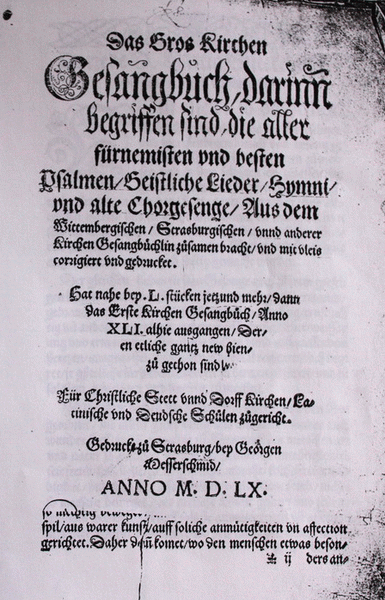 Das Gros Kirchen
Gesangbůch, darinn
begriffen sind/die aller
fürnemisten vnd besten
Psalmen/Geistliche Lieder/Hymni/
vnd alte Chorgesenge/Aus dem
Wittembergischen/Strasburgischen/vnnd anderer
Kirchen Gesangbüchlin zůsamen bracht/vnd mit vleis
corrigiert vnd gedrucket.
Hat nahe bey .L. stücken jetzund mehr/dann
das Erste Kirchen Gesangbůch/Anno
XLI. alhie ausgangen/Der-
en etliche gantz new hien-
zů gethon sind
Für Christliche Stett vnnd Dorff Kirchen/La-
tinische vnd Deudsche Schůlen zůgericht.
Gedruckt zů Strasburg/bey Georgen
Messerschmid/
ANNO M. D. LX.
spil/aus warer kunst/auff soliche anmůtigkeiten vn affection
gerichtet. Daher komet/wo den menschen etwas beson-
ij ders an-